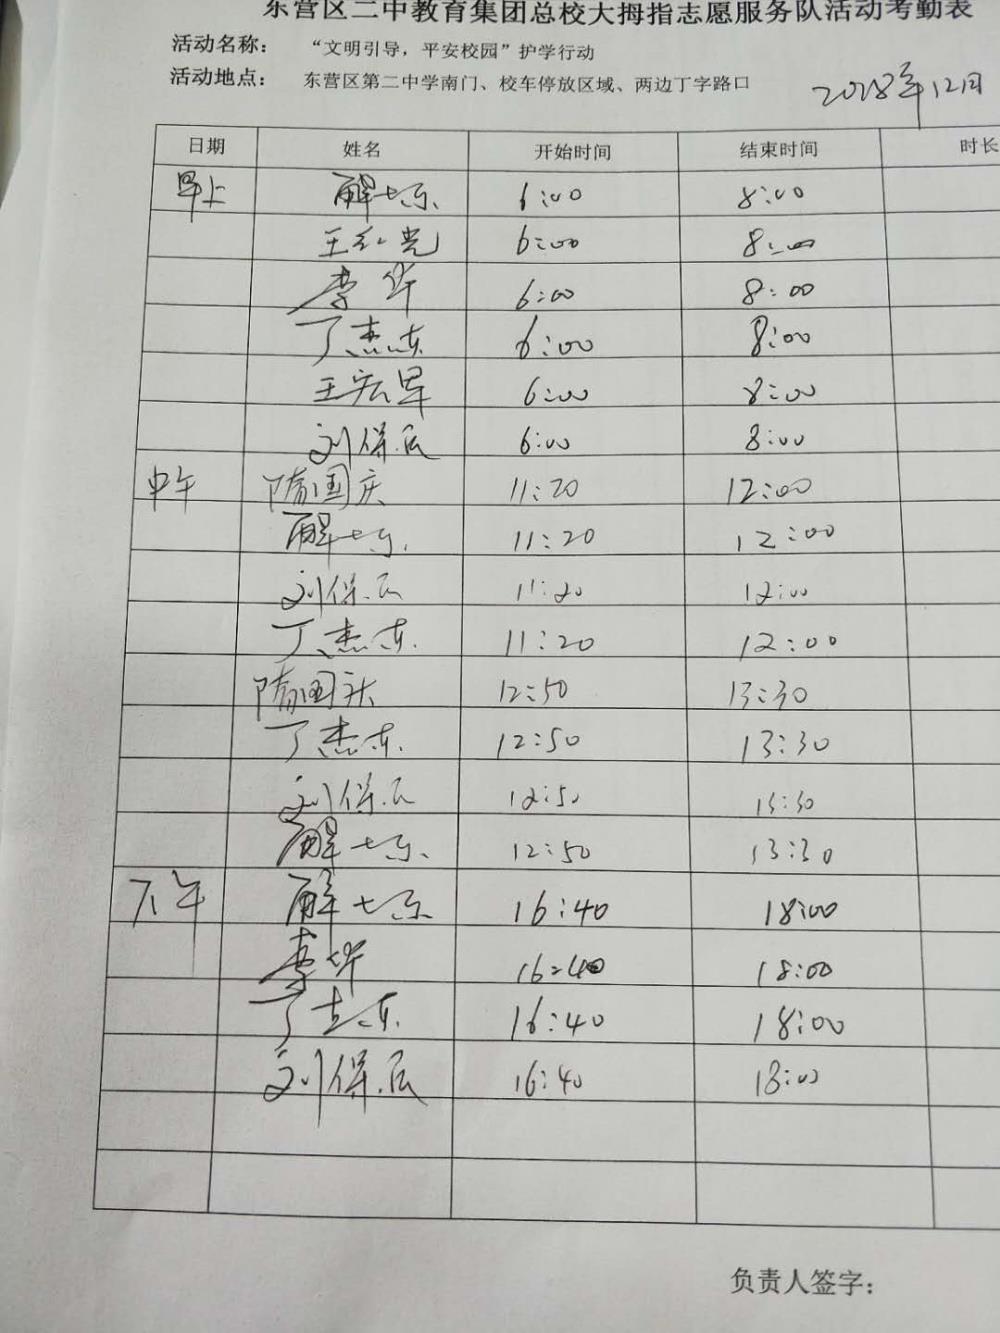 东营区二中教育集团总校大拇指志愿服务队活动考勤表
活动名称： “文明引导，平安校园”护学行动
活动地点： 东营区第二中学南门、校车停放区域、两边丁字路口
2018年12月
日期 姓名 开始时间 结束时间 时长
早上 解 6:00 8:00
王红光 6:00 8:00
李华 6:00 8:00
丁杰东 6:00 8:00
王宏军 6:00 8:00
刘保 6:00 8:00
中午 隋国庆 11:20 12:00
解 11:20 12:00
刘保 11:20 12:00
丁杰东 11:20 12:00
隋国庆 12:50 13:30
丁杰东 12:50 13:30
刘保 12:50 13:30
解 12:50 13:30
下午 解 16:40 18:00
李华 16:40 18:00
丁杰东 16:40 18:00
刘保 16:40 18:00
负责人签字：